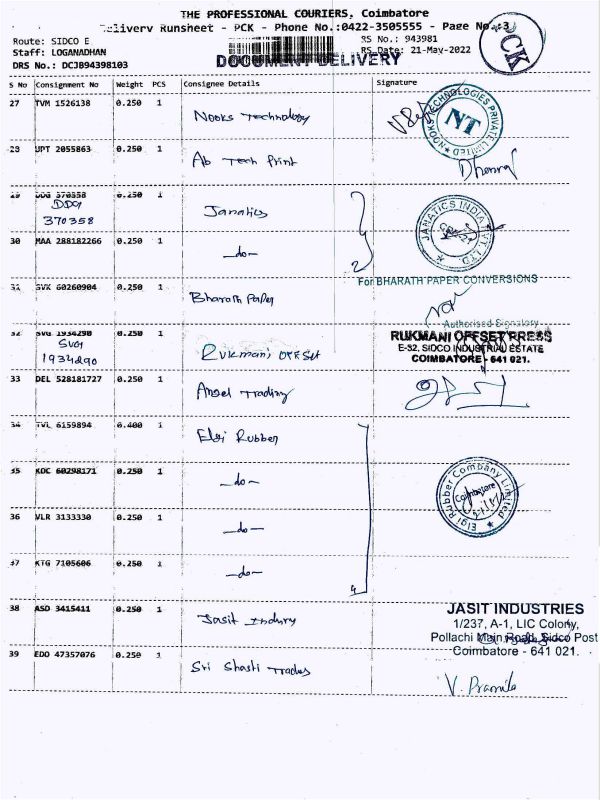 THE PROFESSIONAL COURIERS, Coimbatore
Delivery Runsheet - PCK - Phone No.:0422-3505555 - Page No.:3
PCK
Route: SIDCO E
RS No.: 943981
Staff: LOGANADHAN
RS Date: 21-May-2022
DRS No.: DCJB94398103
DOCUMENT DELIVERY
S No Consignment No Weight PCS Consignee Details Signature
27 TVM 1526138 0.250 1 Nooks Technology
NOOKS TECHNOLOGIES PRIVATE LIMITED
NT
28 JPT 2055863 0.250 1 Ab Tech Print
Dhanraj
29 DDG 370358 0.250 1 Janatics
370358
JANATICS INDIA PVT. LTD
30 MAA 288182266 0.250 1 -do-
2
For BHARATH PAPER CONVERSIONS
31 GVK 60260904 0.250 1 Bharath Paper
Authorised Signatory
32 SVG 1934290 0.250 1 Rukmani Offset
1934290
RUKMANI OFFSET PRESS
E-32, SIDCO INDUSTRIAL ESTATE
COIMBATORE - 641 021.
33 DEL 528181727 0.250 1 Angel Trading
34 TVL 6159894 0.400 1 Elgi Rubber
35 KDC 60298171 0.250 1 -do-
Elgi Rubber Company Limited
Coimbatore
36 VLR 3133330 0.250 1 -do-
37 KTG 7105606 0.250 1 -do-
4
38 ASD 3415411 0.250 1 Jasit Industry
JASIT INDUSTRIES
1/237, A-1, LIC Colony,
Pollachi Main Road, Sidco Post
Coimbatore - 641 021.
39 EDO 47357076 0.250 1 Sri Shasti Trades
V. Pramila